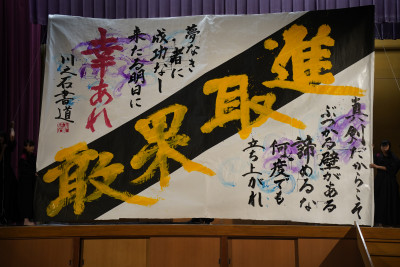 進取果敢
真剣だからこそ
ぶつかる壁がある
諦めるな
何度でも
立ち上がれ
夢なき
者に
成功なし
来たる明日に
幸あれ
川之石書道